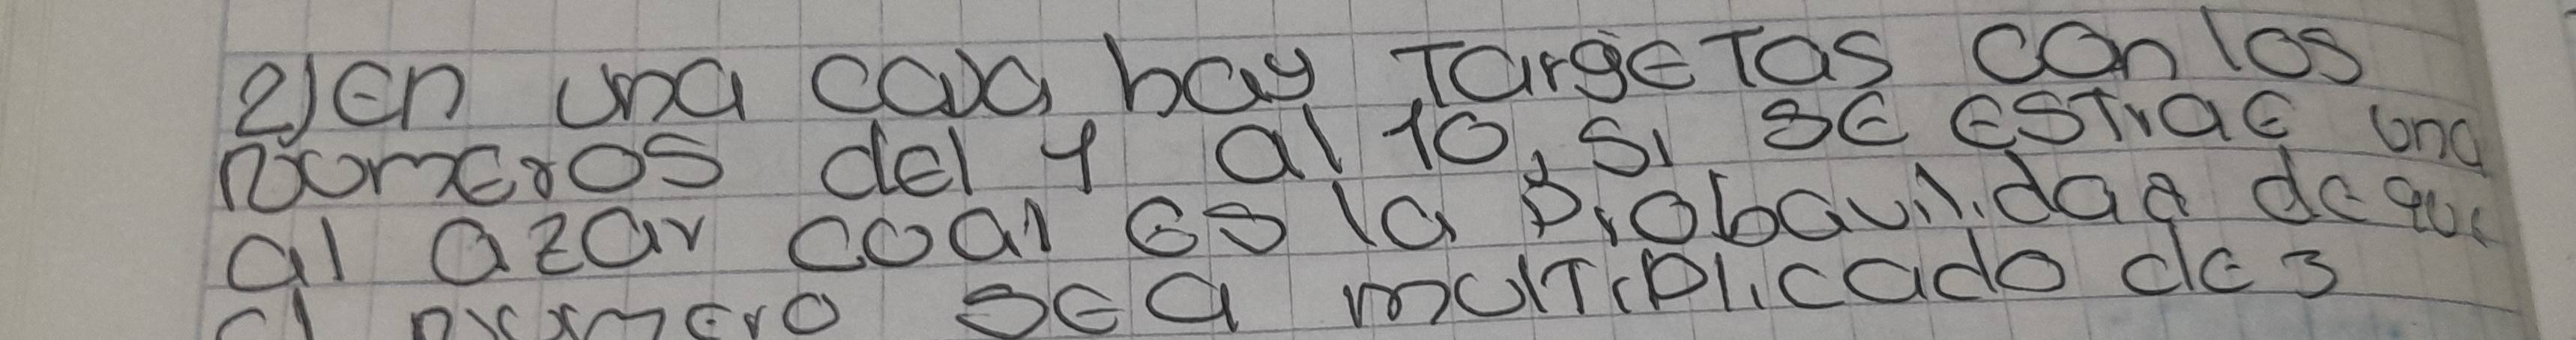 2) En una caja hay TargeTas con los
numeros del 1 al 10, si se esTrae una
al azar coal es la Probavilidad de que
el numero sea mulTiplicado de 3